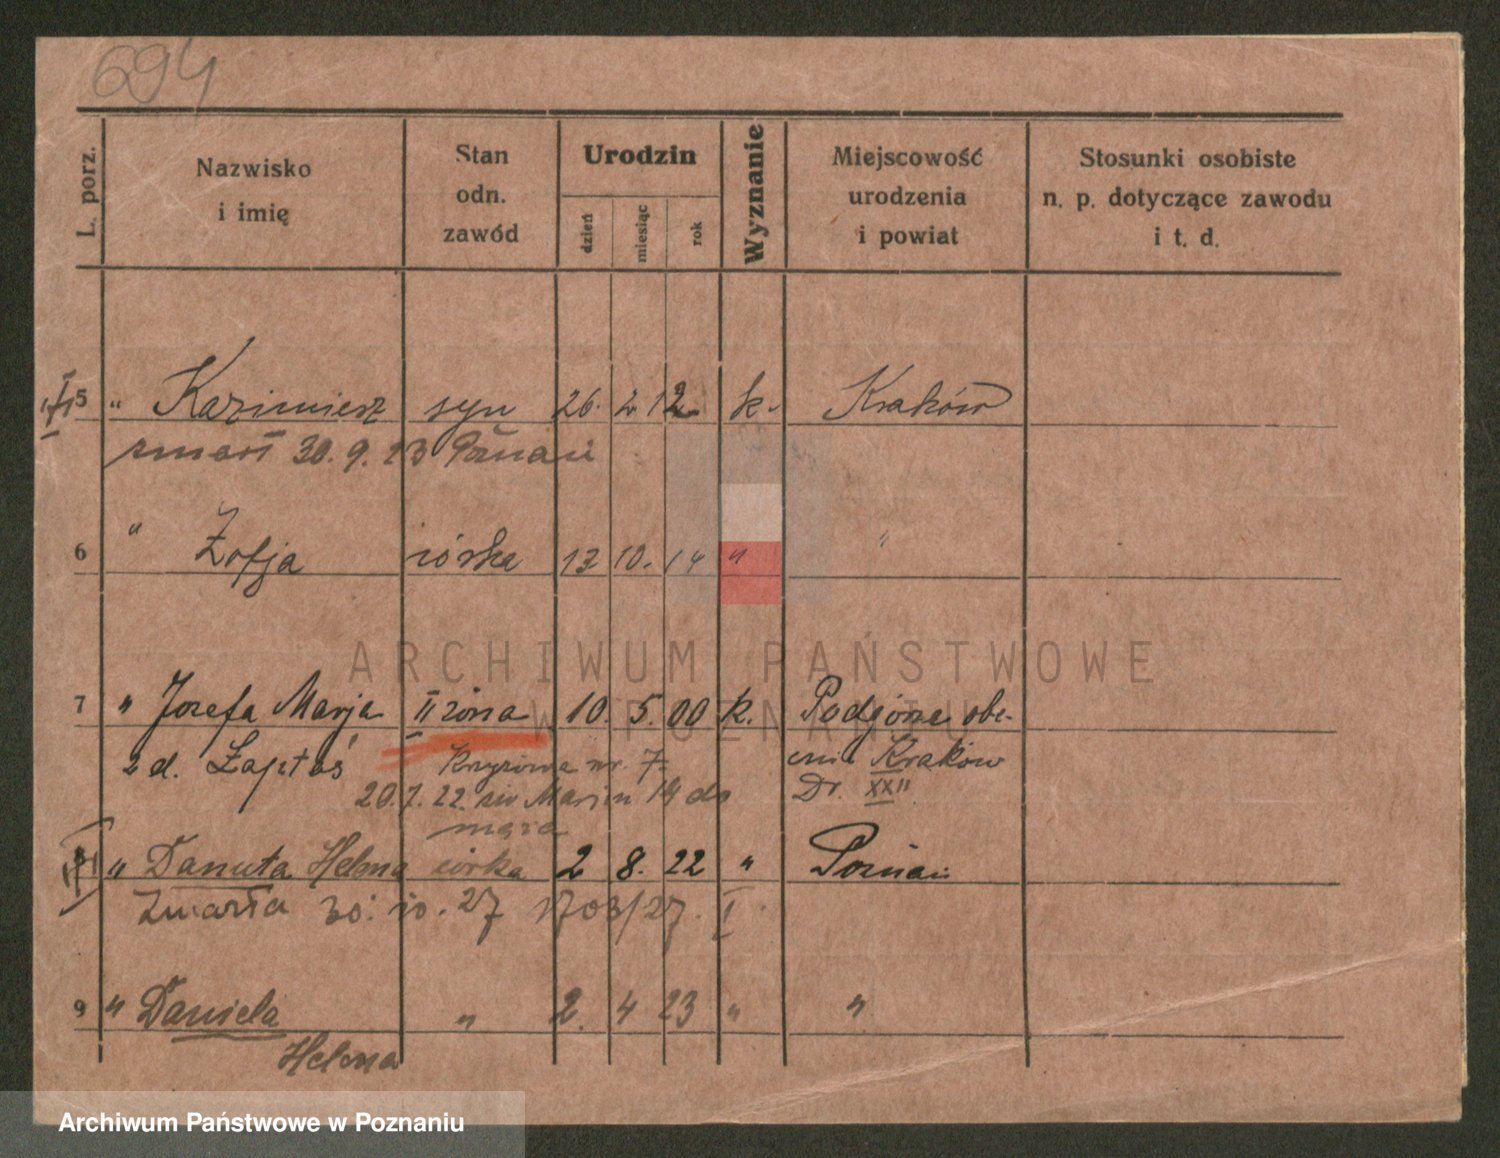 694
L. porz.
Nazwisko
i imię
Stan
odn.
zawód
Urodzin
dzień
miesiąc
rok
Wyznanie
Miejscowość
urodzenia
i powiat
Stosunki osobiste
n. p. dotyczące zawodu
i t. d.
5 " Kazimierz syn 26. 2 12 k. Kraków
zmarł 30. 9. 23 Poznań
6 " Zofja córka 13 10. 14 " "
7 " Jozefa Marja II żona 10. 5. 00 k. Podgórze obe-
z d. Łaptaś nr. 7. cnie Kraków
20.7.22. Dr. XXII
" Danuta Helena córka 2 8. 22 " Poznań
Zmarła 30. 10. 27 1703/27. I.
9 " Daniela " 2. 4 23 " "
Helena
ARCHIWUM PAŃSTWOWE
W POZNANIU
Archiwum Państwowe w Poznaniu